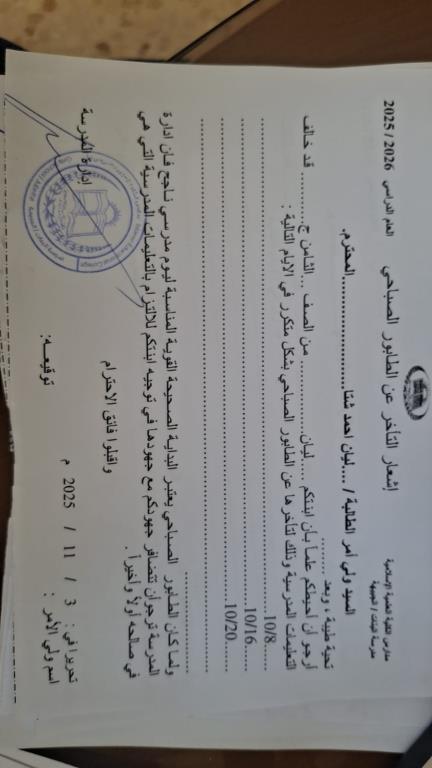 مدارس الكلية العلمية الإسلامية
مدرسة البنات / الجبيهة
إشعار التأخر عن الطابور الصباحي
العام الدراسي 2025 / 2026
السيد ولي أمر الطالبة / ...ليان احمد شتا.....................المحترم.
تحية طيبة ، وبعد ........
أرجو أن أحيطكم علماً بأن ابنتكم ...ليان............ من الصف ...الثامن ج........... قد خالفت
التعليمات المدرسية وذلك لتأخرها عن الطابور الصباحي بشكل متكرر في الأيام التالية :
10/8
10/16
10/20
ولما كان الطابور الصباحي يعتبر البداية الصحيحة القوية المناسبة ليوم مدرسي ناجح فأن ادارة
المدرسة ترجو أن تتضافر جهودكم مع جهودها في توجيه ابنتكم للالتزام بالتعليمات المدرسية التي هي
في صالحه أولاً وأخيراً .
واقبلوا فائق الاحترام
إدارة المدرسة
تحريرا في : 3 / 11 / 2025 م
اسم ولي الأمر :
توقيعــه: